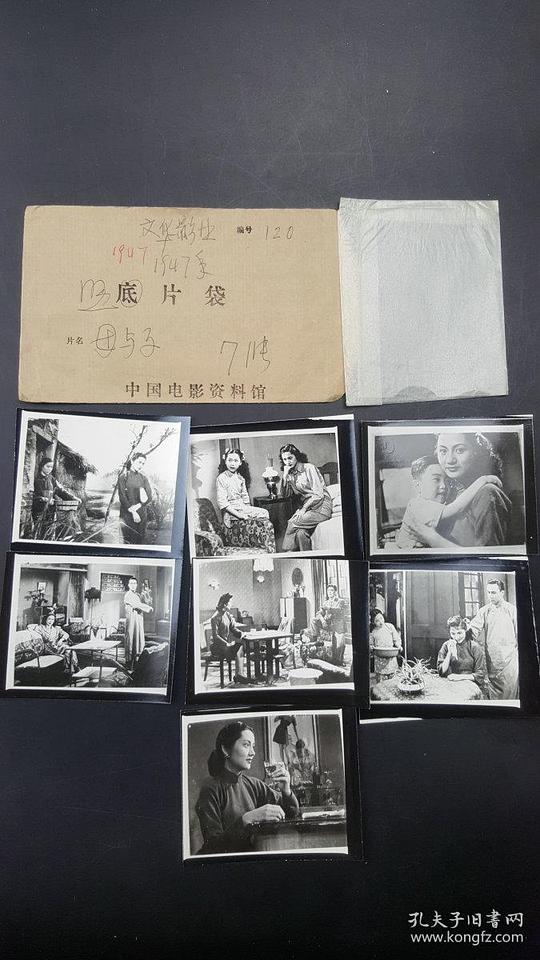 文华影业
编号 120
1947
1947年
底片袋
片名 母与子
7张
中国电影资料馆
孔夫子旧书网
www.kongfz.com